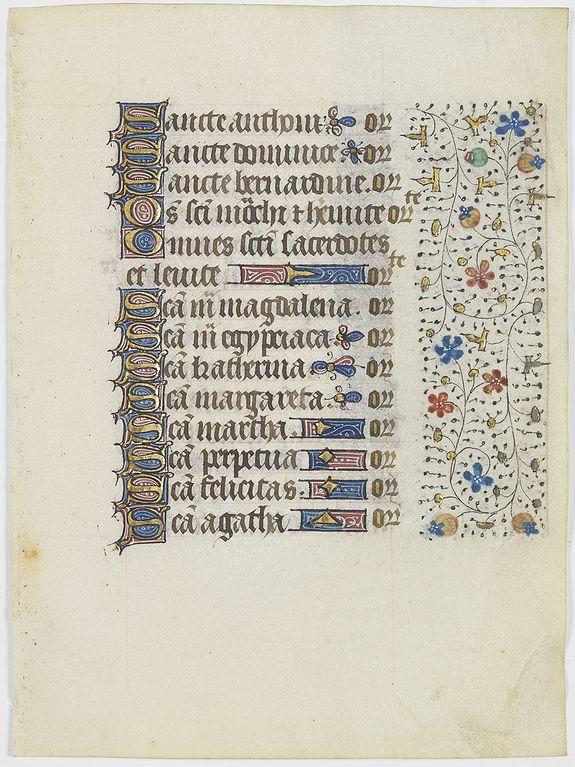 Sancte anthoni. or
Sancte dominice or
Sancte bernardine. or
Os sci mōchi ⁊ hēmite or te
Omnes scti sacerdotes
et leuite or te
Scā m̄ magdalena. or
Scā m̄ egypciaca or
Scā katherina or
Scā margareta. or
Scā martha. or
Scā perpetua or
Scā felicitas. or
Scā agatha or